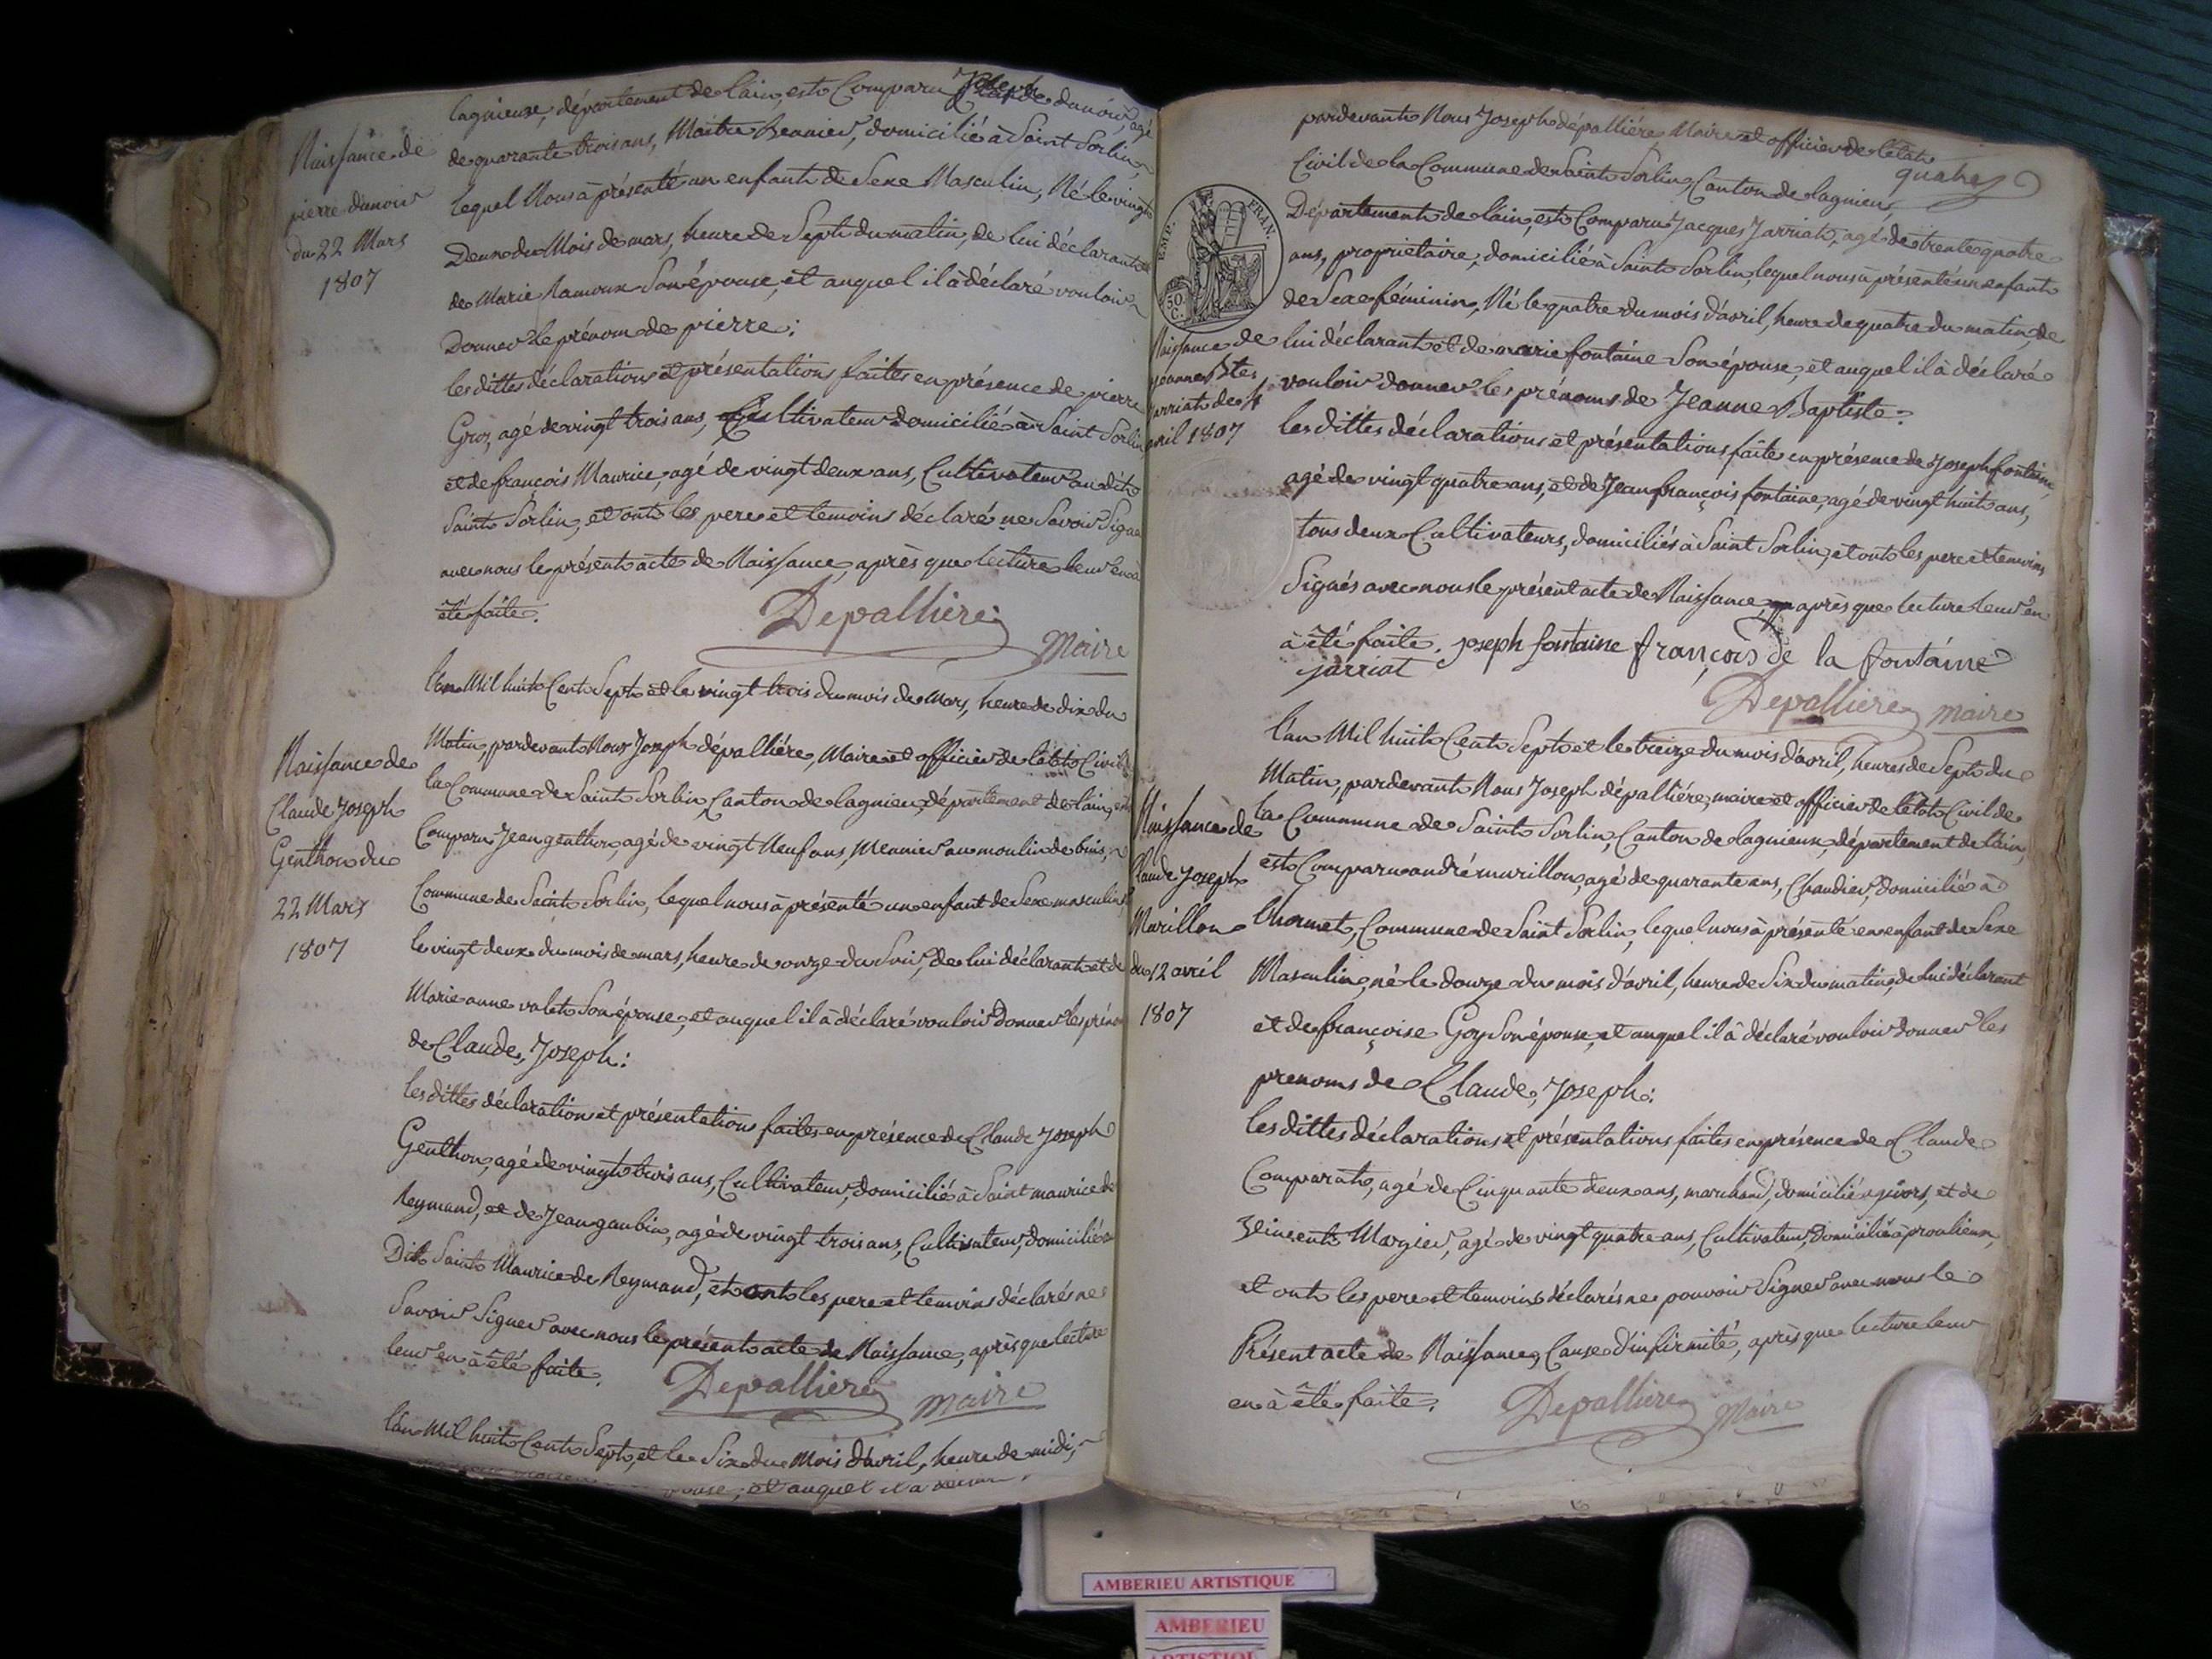 Naissance de
pierre dunoir
du 22 Mars
1807
lagnieux, département de lain, est Comparu Joseph dunoir, agé
de quarante trois ans, Maitre Beanier, domicilié à Saint Sorlin,
lequel Nous à présenté un enfant de Sexe Masculin, Né le vingt
Deux du Mois de mars, heure de Sept du matin, de lui déclarant
de Marie Ramoux Son épouse, et auquel il à déclaré vouloir
Donner le prénom de pierre;
les dittes déclarations et présentations faites en présence de pierre
Groz, agé de vingt trois ans, Cultivateur domicilié à Saint Sorlin
et de françois Maurice, agé de vingt deux ans, Cultivateur au dit
Saint Sorlin, et ont les pere et temoins déclaré ne Savoir Signer
avec nous le présent acte de Naissance, après que lecture leur en à
été faite.
Depalliere
Maire
Naissance de
Claude Joseph
Genthon du
22 Mars
1807
l'an Mil huit Cent Sept et le vingt trois du mois de Mars, heure de dix du
Matin, pardevant Nous Joseph dépalliére, Maire et officier de l'état Civil
la Commune de Saint Sorlin, Canton de lagnieu, département de lain, est
Comparu Jean genthon, agé de vingt Neuf ans, Meunier au moulin de buis,
Commune de Saint Sorlin, lequel nous à présenté un enfant de Sexe masculin,
le vingt deux du mois de mars, heure de onze du Soir, de lui déclarant et de
Marie anne valet Son épouse, et auquel il à déclaré vouloir Donner les prénoms
de Claude, Joseph:
les dittes déclaration et présentations faites en présence de Claude Joseph
Genthon, agé de vingt trois ans, Cultivateur, domicilié à Saint maurice de
Reymand, et de Jean gaubin, agé de vingt trois ans, Cultivateur, domicilié au
Dit Saint Maurice de Reymand, et ont les pere et temoins déclarés ne
Savoir Signer avec nous le présent acte de Naissance, après que lecture
leur en à été faite.
Depalliere maire
l'an Mil huit Cent Sept, et le Six du Mois d'avril, heure de midi,
épouse, et auquel il a
pardevant Nous Joseph dépalliére Maire et officier de l'état
quatre
Civil de la Commune de Saint Sorlin, Canton de lagnieu,
Département de lain, est Comparu Jacques Jarriat, agé de trente quatre
ans, propriétaire, domicilié à Saint Sorlin, lequel nous à présenté un enfant
de Sexe féminin, Né le quatre du mois d'avril, heure de quatre du matin, de
lui déclarant et de marie fontaine Son épouse, et auquel il à déclaré
vouloir donner les prénoms de Jeanne Baptiste:
EMP. FRAN.
50
C.
Naissance de
Jeanne Bte
Jarriat de 4
avril 1807
les dittes déclarations et présentations faite en présence de Joseph fontaine,
agé de vingt quatre ans, et de Jean françois fontaine, agé de vingt huit ans,
tous deux Cultivateurs, domiciliés à Saint Sorlin, et ont les pere et temoins
Signés avec nous le présent acte de Naissance, après que lecture leur en
à été faite. joseph fontaine françois de la fontaine
jarriat
Depalliere maire
Naissance de
Claude Joseph
Murillon
du 12 avril
1807
l'an Mil huit Cent Sept et le treize du mois d'avril, heures de Sept du
Matin, pardevant Nous Joseph dépalliére, maire et officier de l'état Civil de
la Commune de Saint Sorlin, Canton de lagnieux, département de lain,
est Comparu andré murillon, agé de quarante ans, Chaudier, domicilié à
Chormet, Commune de Saint Sorlin, lequel nous à présenté un enfant de Sexe
Masculin, né le douze du mois d'avril, heure de Six du matin, de lui déclarant
et de françoise Goy Son épouse, et auquel il à déclaré vouloir donner les
prenoms de Claude, Joseph:
les dittes déclarations et présentations faites en présence de Claude
Comparat, agé de Cinquante deux ans, marchand, domicilié a givors, et de
Margier, agé de vingt quatre ans, Cultivateur, Domicilié à proulieux,
et ont les pere et temoins déclarés ne pouvoir Signer avec nous le
Présent acte de Naissance, Cause d'infirmité, après que lecture leur
en à été faite.
Depalliere Maire
AMBERIEU ARTISTIQUE
AMBERIEU
ARTISTIQUE